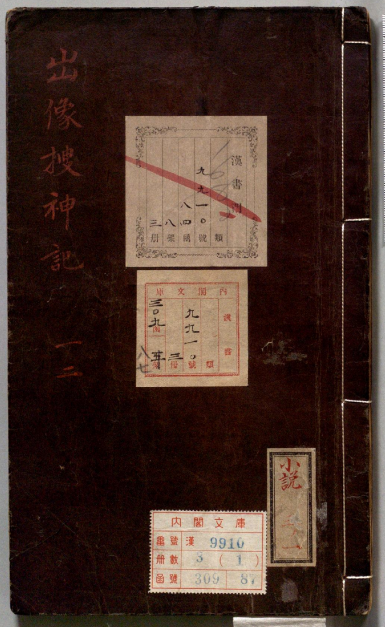 出像搜神記 一二
漢書門
九九一〇
八四
八
三
類號函架冊
內閣文庫
漢書
九九一〇
三
三〇九
八七
小說
內閣文庫
番號 漢 9910
冊數 3 (1)
函號 309 87